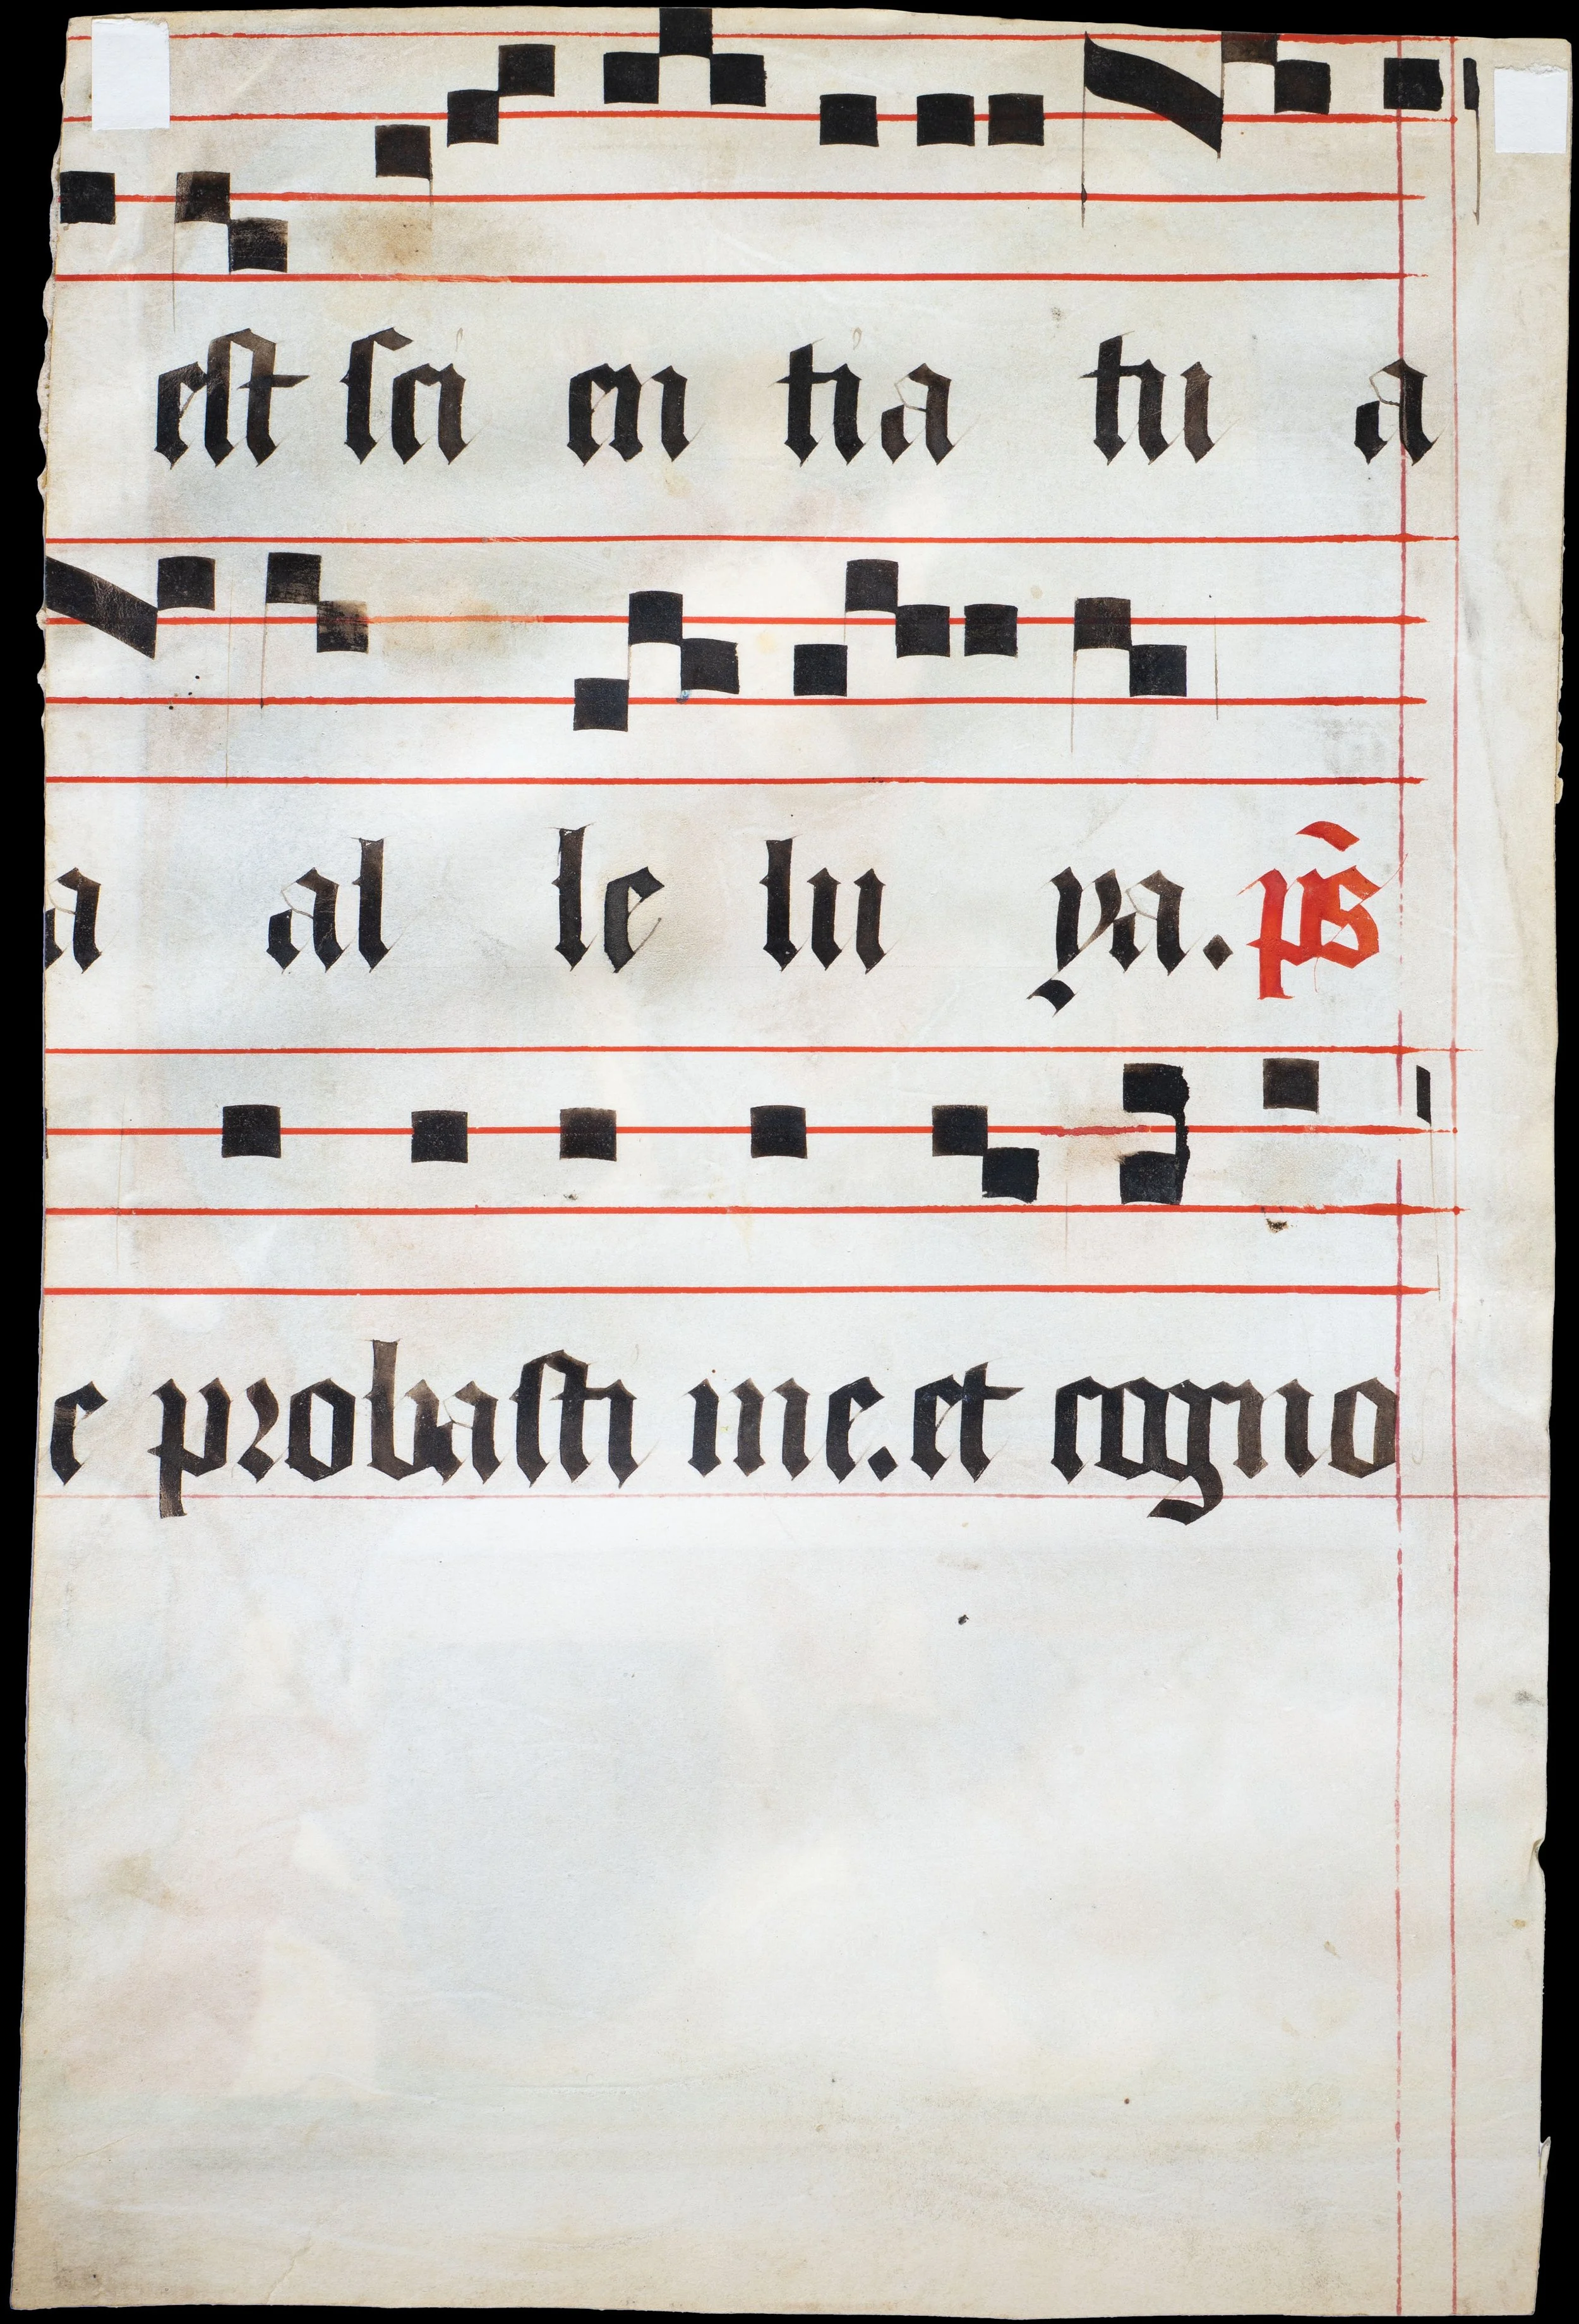 est sci en tia tu a
a al le lu ya. ps
e probasti me. et cogno